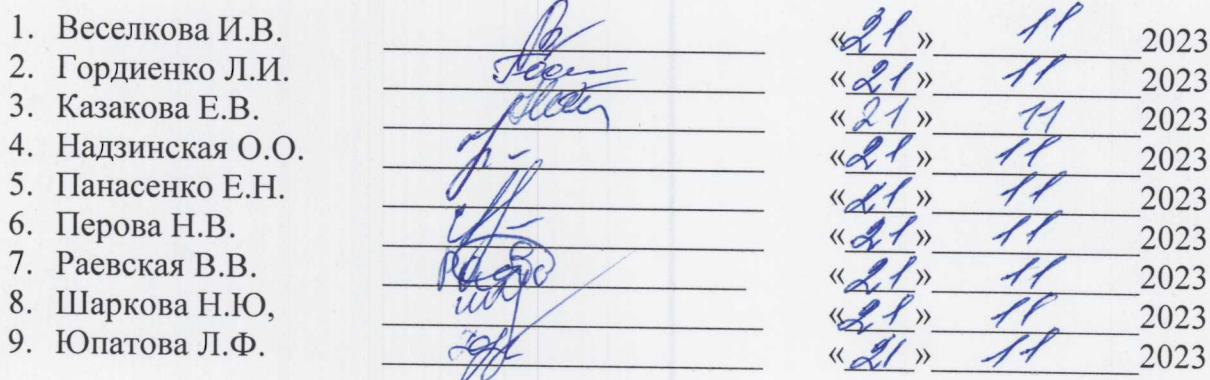 1. Веселкова И.В. «21» 11 2023
2. Гордиенко Л.И. «21» 11 2023
3. Казакова Е.В. «21» 11 2023
4. Надзинская О.О. «21» 11 2023
5. Панасенко Е.Н. «21» 11 2023
6. Перова Н.В. «21» 11 2023
7. Раевская В.В. «21» 11 2023
8. Шаркова Н.Ю, «21» 11 2023
9. Юпатова Л.Ф. «21» 11 2023